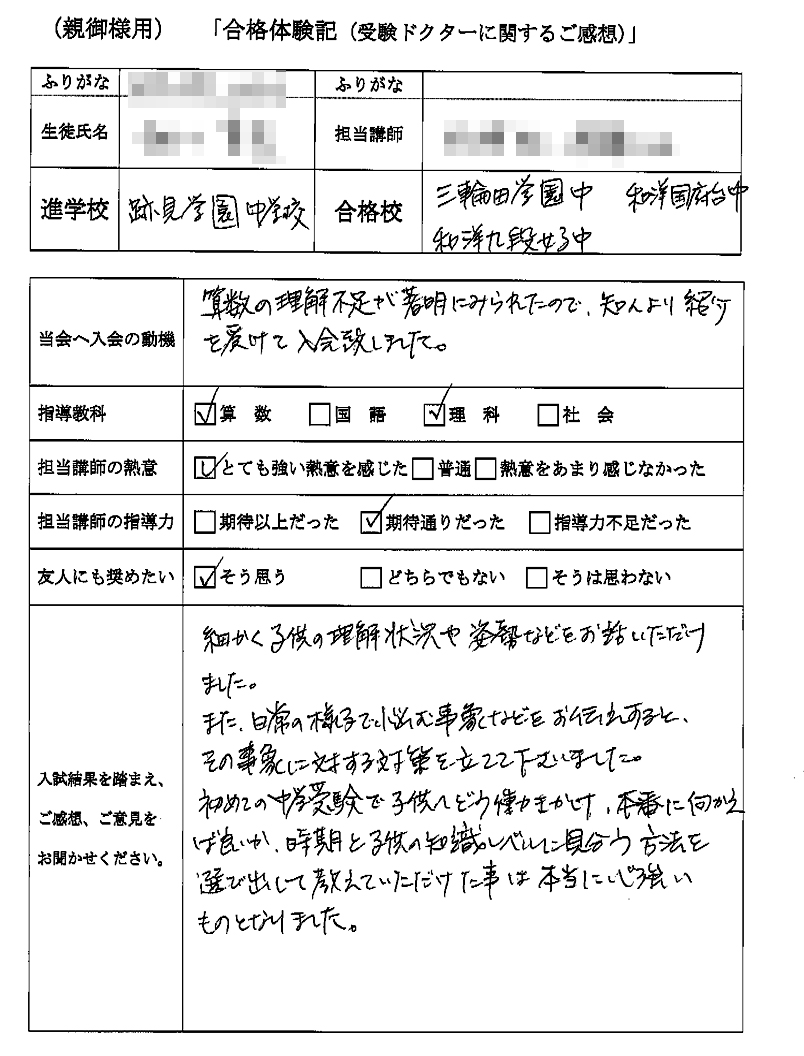 （親御様用）　「合格体験記（受験ドクターに関するご感想）」
ふりがな　ふりがな
生徒氏名　担当講師
進学校　跡見学園中学校　合格校　三輪田学園中　和洋国府台中
和洋九段女子中
算数の理解不足が著明にみられたので、知人より紹介
当会へ入会の動機
を受けて入会致しました。
指導教科　☑算　数　☐国　語　☑理　科　☐社　会
担当講師の熱意　☑とても強い熱意を感じた☐普通☐熱意をあまり感じなかった
担当講師の指導力　☐期待以上だった　☑期待通りだった　☐指導力不足だった
友人にも奨めたい　☑そう思う　☐どちらでもない　☐そうは思わない
入試結果を踏まえ、
ご感想、ご意見を
お聞かせください。
細かく子供の理解状況や姿勢などをお話いただけ
ました。
また、日常の様子で悩む事象などをお伝えすると、
その事象に対する対策を立てて下さいました。
初めての中学受験で子供へどう働きかけ、本番に向かえ
ば良いか、時期と子供の知識レベルに見合う方法を
選び出して教えていただけた事は本当に心強い
ものとなりました。